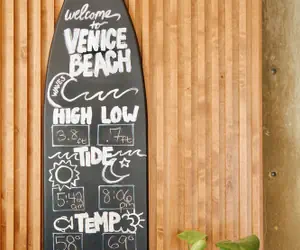 welcome
to
VENICE
BEACH
WAVES
HIGH LOW
3.8ft .7ft
TIDE
5:42 8:06
am pm
TEMP
58° 69°